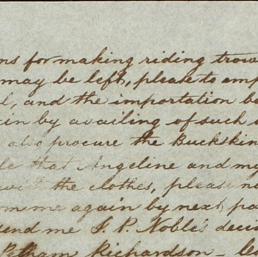 ns for making riding trow
may be left, please to emp
l, and the importation be
in by availing of such
also procure the Buckskin
le that Angeline and my
with the clothes, please no
me again by next pa
end me J. P. Noble's decis
Pelham Richardson - le